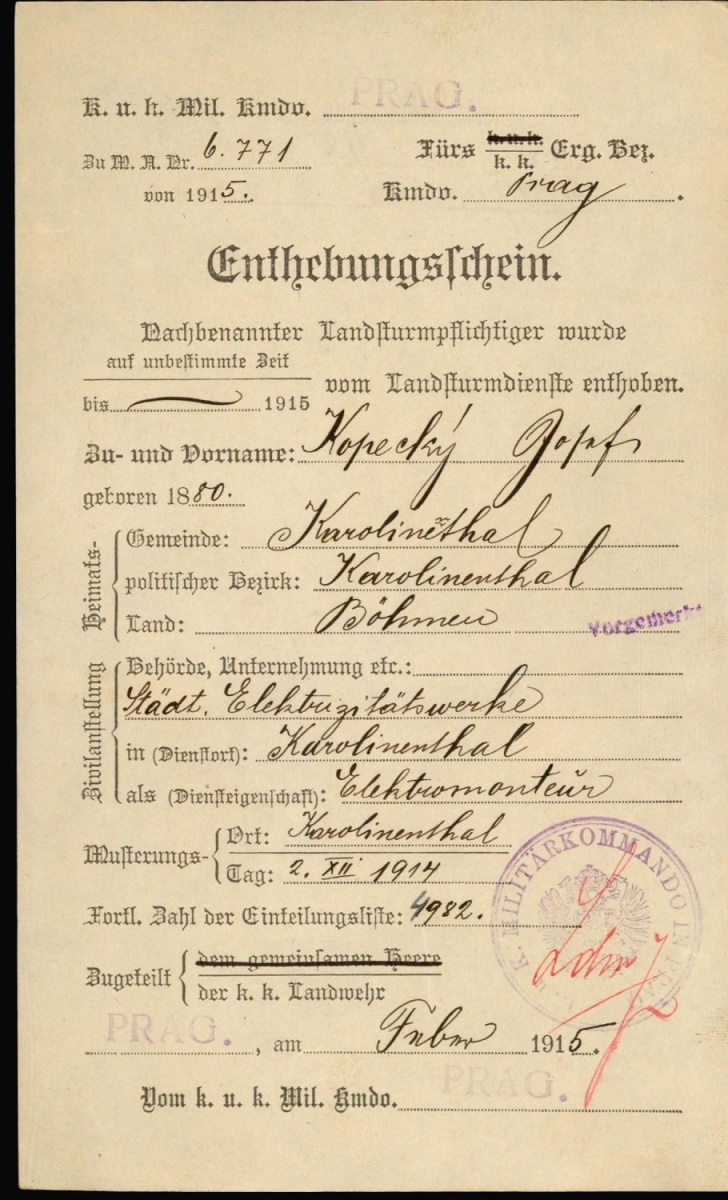 K. u. k. Mil. Kmdo. PRAG.
Zu M. A. Nr. 6.771
Fürs k. u. k. Erg. Bez.
k. k.
von 1915. Kmdo. Prag.
Enthebungsschein.
Nachbenannter Landsturmpflichtiger wurde
auf unbestimmte Zeit
vom Landsturmdienste enthoben.
bis 1915
Zu- und Vorname: Kopecký Josef
geboren 1880.
Heimats-
Gemeinde: Karolinenthal
politischer Bezirk: Karolinenthal
Land: Böhmen
Vorgemerkt
Zivilanstellung
Behörde, Unternehmung etc.:
Städt. Elektrizitätswerke
in (Dienstort): Karolinenthal
als (Diensteigenschaft): Elektromonteur
Musterungs-
Ort: Karolinenthal
Tag: 2. XII 1914
Fortl. Zahl der Einteilungsliste: 4982.
Zugeteilt
dem gemeinsamen Heere
der k. k. Landwehr
K. MILITÄRKOMMANDO IN PRAG
PRAG., am Feber 1915.
PRAG.
Vom k. u. k. Mil. Kmdo.